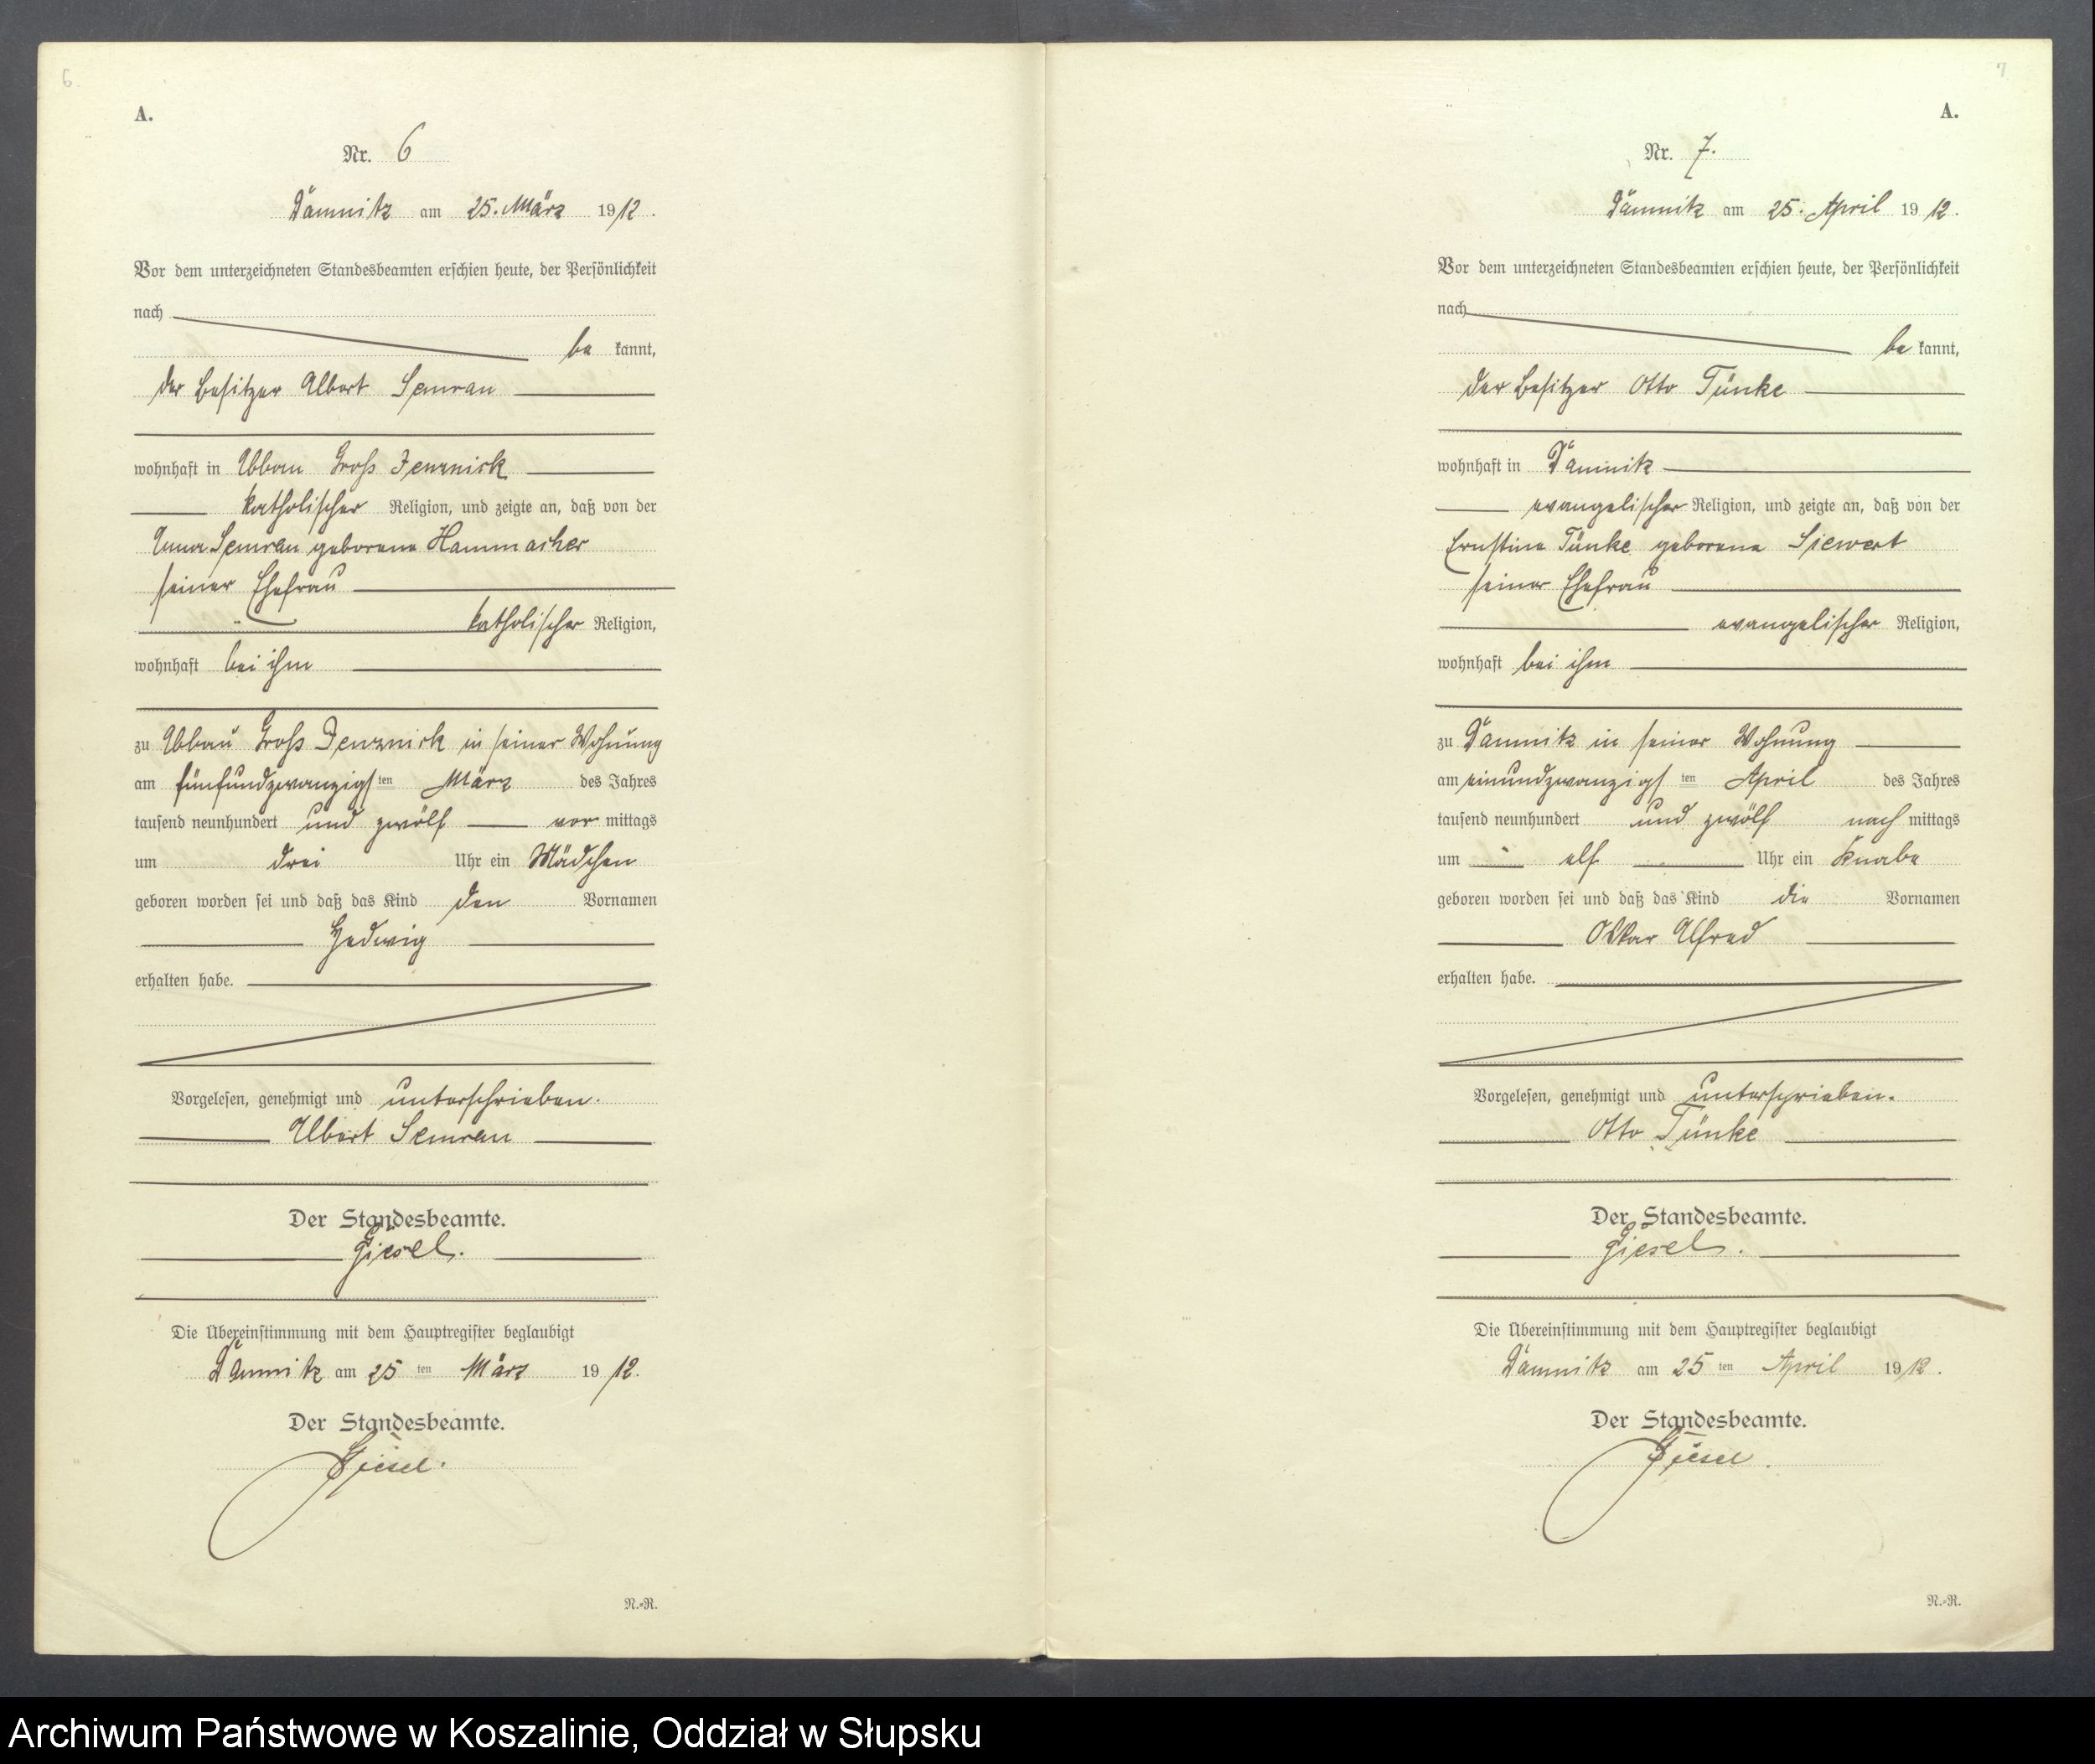 6
A.
Nr. 6
Dämnitz am 25. März 1912.
Vor dem unterzeichneten Standesbeamten erschien heute, der Persönlichkeit
nach
be kannt,
der Besitzer Albert Semrau
wohnhaft in Abbau Groß Jenznick
katholischer Religion, und zeigte an, daß von der
Anna Semrau geborene Hammacher
seiner Ehefrau
katholischer Religion,
wohnhaft bei ihm
zu Abbau Groß Jenznick in seiner Wohnung
am fünfundzwanzigsten März des Jahres
tausend neunhundert und zwölf vor mittags
um drei Uhr ein Mädchen
geboren worden sei und daß das Kind den Vornamen
Hedwig
erhalten habe.
Vorgelesen, genehmigt und unterschrieben.
Albert Semrau
Der Standesbeamte.
Giesel.
Die Übereinstimmung mit dem Hauptregister beglaubigt
Dämnitz am 25 ten März 1912.
Der Standesbeamte.
Giesel.
N.=R.
7
A.
Nr. 7.
Dämnitz am 25. April 1912.
Vor dem unterzeichneten Standesbeamten erschien heute, der Persönlichkeit
nach
be kannt,
der Besitzer Otto Tünke
wohnhaft in Dämnitz
evangelischer Religion, und zeigte an, daß von der
Ernstine Tünke geborene Siewert
seiner Ehefrau
evangelischer Religion,
wohnhaft bei ihm
zu Dämnitz in seiner Wohnung
am einundzwanzigsten April des Jahres
tausend neunhundert und zwölf nach mittags
um elf Uhr ein Knabe
geboren worden sei und daß das Kind die Vornamen
Oskar Alfred
erhalten habe.
Vorgelesen, genehmigt und unterschrieben.
Otto Tünke
Der Standesbeamte.
Giesel.
Die Übereinstimmung mit dem Hauptregister beglaubigt
Dämnitz am 25 ten April 1912.
Der Standesbeamte.
Giesel.
N.=R.
Archiwum Państwowe w Koszalinie, Oddział w Słupsku